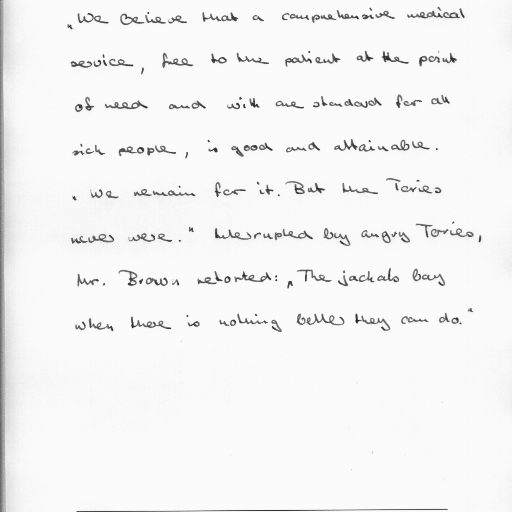 „We believe that a comprehensive medical
service, free to the patient at the point
of need and with one standard for all
sick people, is good and attainable.
„We remain for it. But the Tories
never were." Interrupted by angry Tories,
Mr. Brown retorted: „The jackals bay
when there is nothing better they can do."